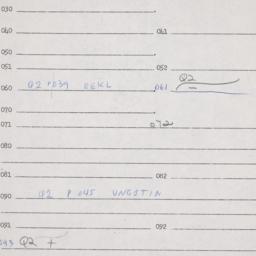 030
040 041
050
051 052
060 Q2 061 Q2
070
071 072
080
081 082
090 Q2 P 045
091 092
093 Q2 +